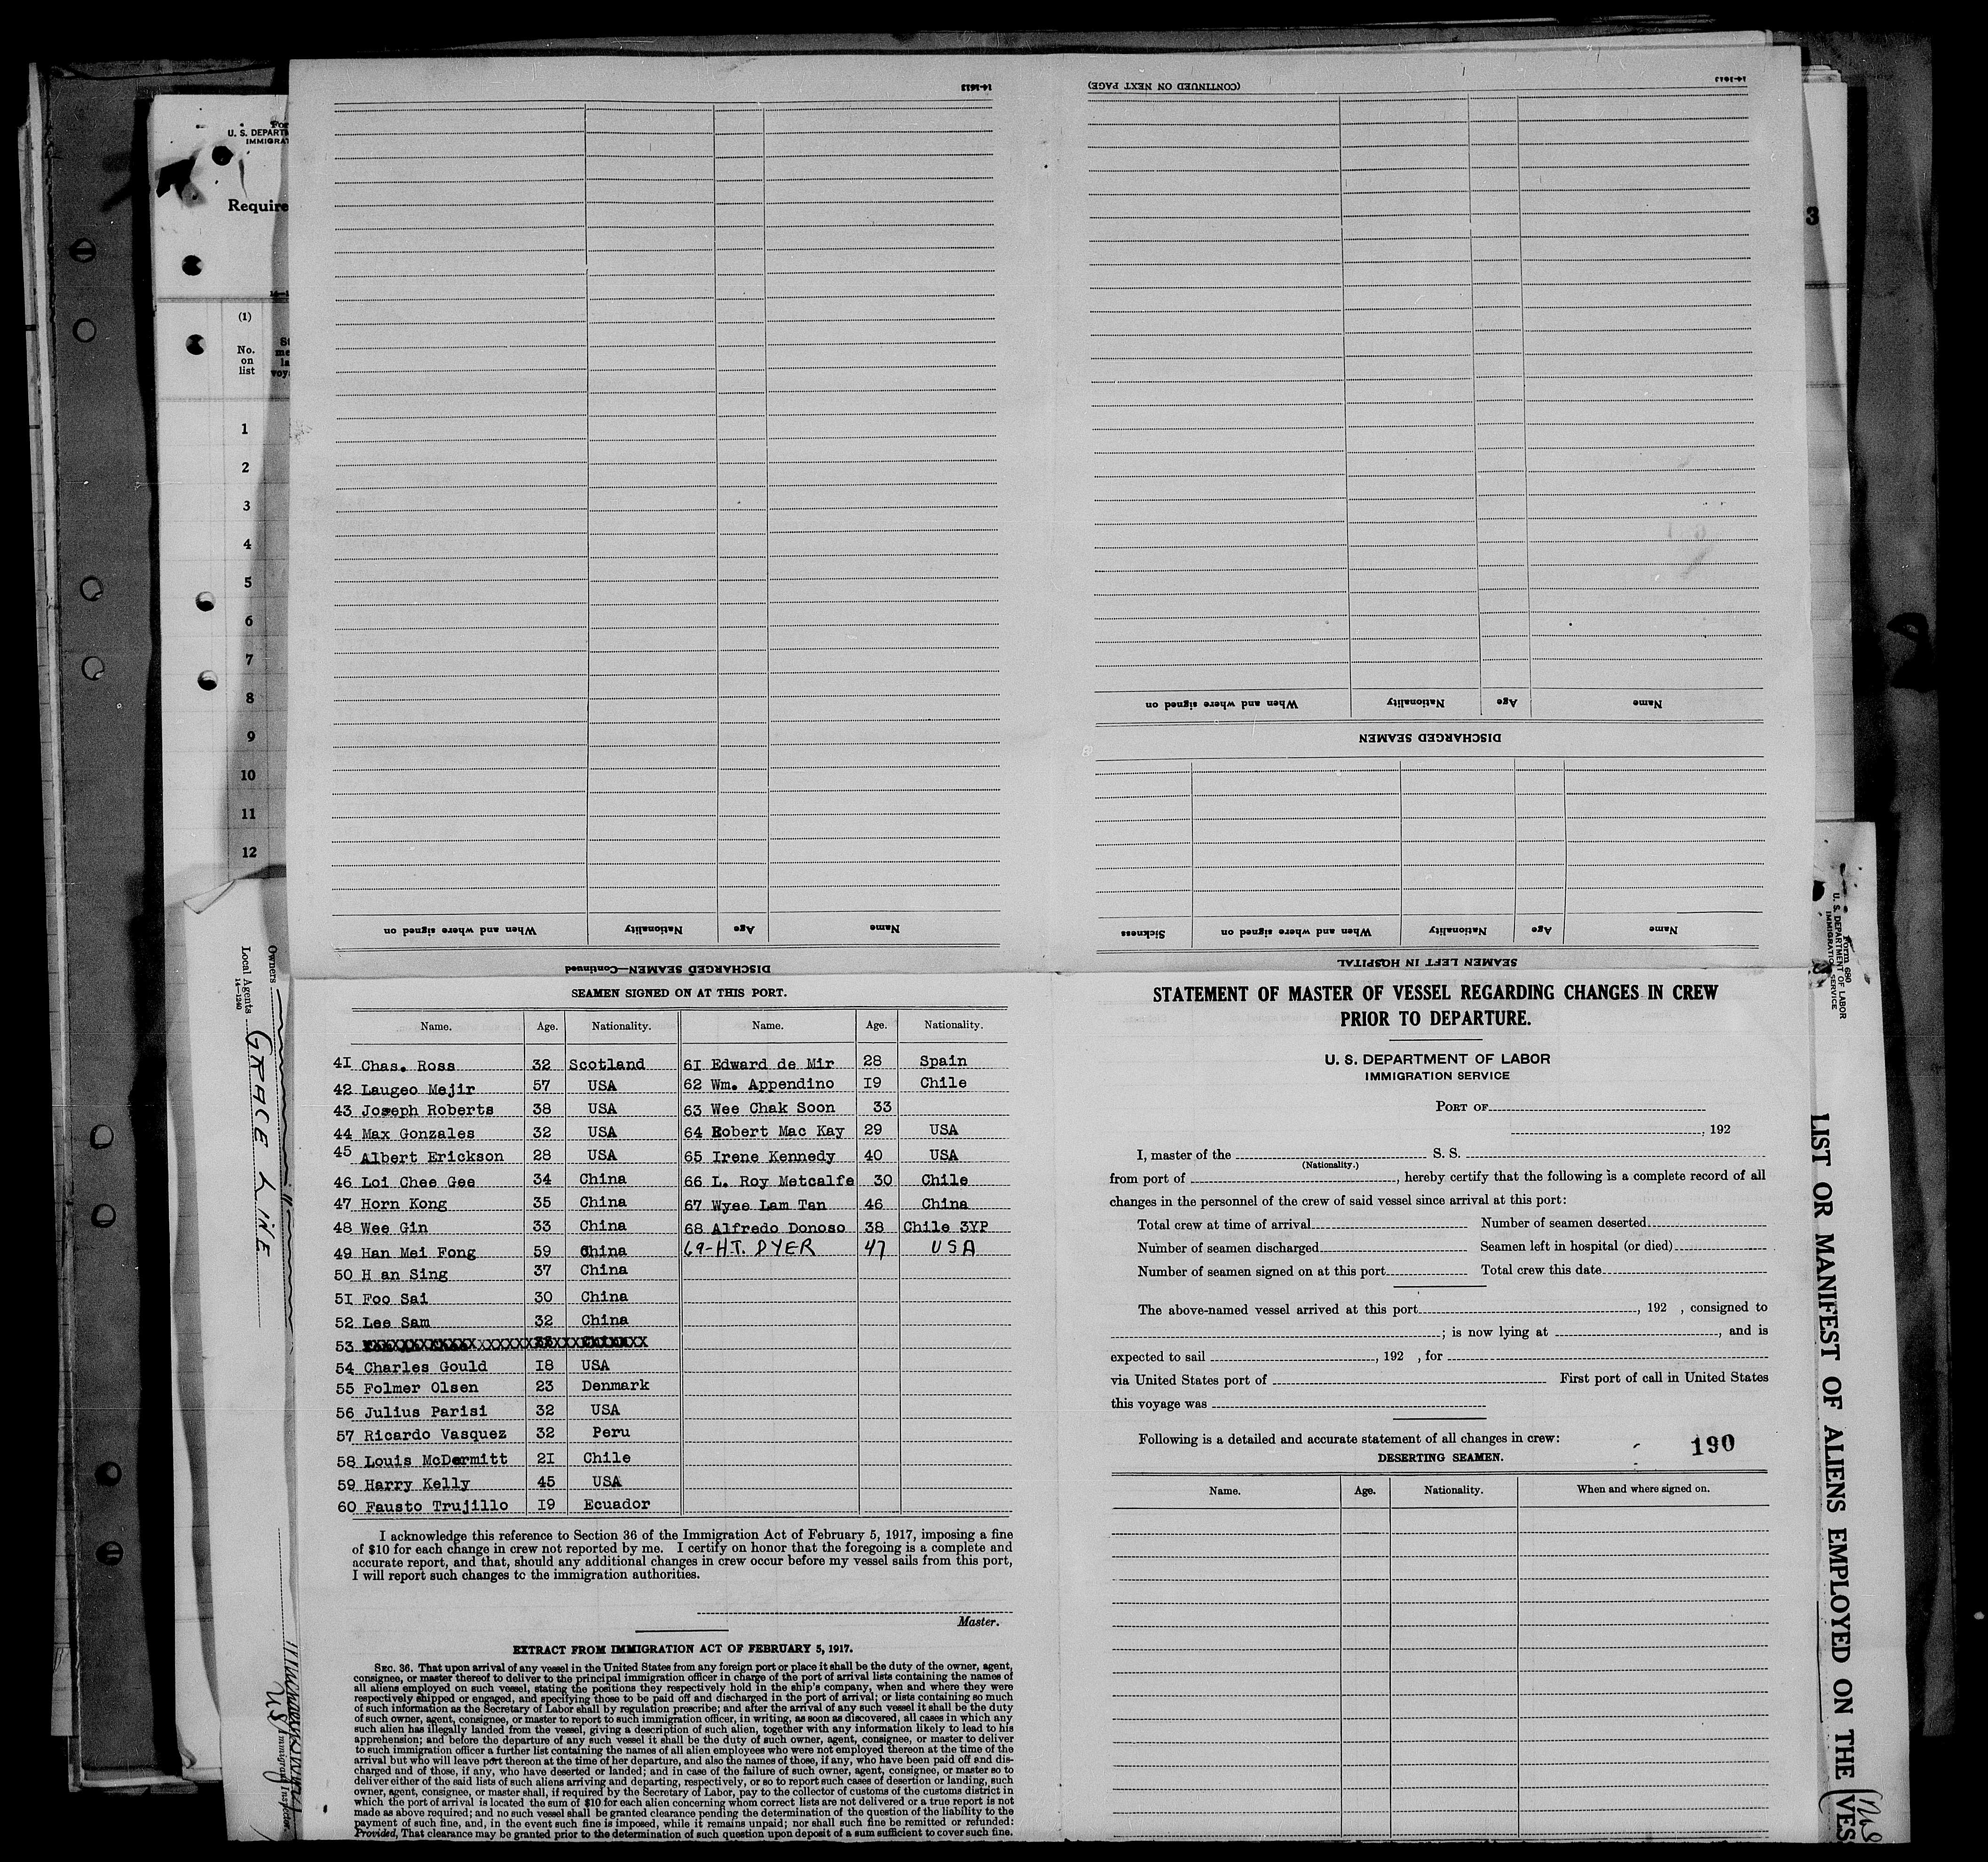 14-1613
(CONTINUED ON NEXT PAGE)
14-1613
U. S. DEPARTM
IMMIGRAT
Require
3
(1)
No.
on
list
1
2
3
4
5
6
7
8
9
10
11
12
When and where signed on
Nationality
Age
Name
DISCHARGED SEAMEN
When and where signed on
Nationality
Age
Name
DISCHARGED SEAMEN—Continued
Sickness
When and where signed on
Nationality
Age
Name
SEAMEN LEFT IN HOSPITAL
Owners
Local Agents GRACE LINE
14-1240
U S Immigrant Inspector.
SEAMEN SIGNED ON AT THIS PORT.
Name. Age. Nationality. Name. Age. Nationality.
41 Chas. Ross 32 Scotland 61 Edward de Mir 28 Spain
42 Laugeo Mejir 57 USA 62 Wm. Appendino 19 Chile
43 Joseph Roberts 38 USA 63 Wee Chak Soon 33
44 Max Gonzales 32 USA 64 Robert Mac Kay 29 USA
45 Albert Erickson 28 USA 65 Irene Kennedy 40 USA
46 Loi Chee Gee 34 China 66 L. Roy Metcalfe 30 Chile
47 Horn Kong 35 China 67 Wyee Lam Tan 46 China
48 Wee Gin 33 China 68 Alfredo Donoso 38 Chile 3YP
49 Han Mei Fong 59 China 69-H.T. DYER 47 USA
50 H an Sing 37 China
51 Foo Sai 30 China
52 Lee Sam 32 China
53
54 Charles Gould 18 USA
55 Folmer Olsen 23 Denmark
56 Julius Parisi 32 USA
57 Ricardo Vasquez 32 Peru
58 Louis McDermitt 21 Chile
59 Harry Kelly 45 USA
60 Fausto Trujillo 19 Ecuador
I acknowledge this reference to Section 36 of the Immigration Act of February 5, 1917, imposing a fine
of $10 for each change in crew not reported by me. I certify on honor that the foregoing is a complete and
accurate report, and that, should any additional changes in crew occur before my vessel sails from this port,
I will report such changes to the immigration authorities.
Master.
EXTRACT FROM IMMIGRATION ACT OF FEBRUARY 5, 1917.
SEC. 36. That upon arrival of any vessel in the United States from any foreign port or place it shall be the duty of the owner, agent,
consignee, or master thereof to deliver to the principal immigration officer in charge of the port of arrival lists containing the names of
all aliens employed on such vessel, stating the positions they respectively hold in the ship's company, when and where they were
respectively shipped or engaged, and specifying those to be paid off and discharged in the port of arrival; or lists containing so much
of such information as the Secretary of Labor shall by regulation prescribe; and after the arrival of any such vessel it shall be the duty
of such owner, agent, consignee, or master to report to such immigration officer, in writing, as soon as discovered, all cases in which any
such alien has illegally landed from the vessel, giving a description of such alien, together with any information likely to lead to his
apprehension; and before the departure of any such vessel it shall be the duty of such owner, agent, consignee, or master to deliver
to such immigration officer a further list containing the names of all alien employees who were not employed thereon at the time of the
arrival but who will leave port thereon at the time of her departure, and also the names of those, if any, who have been paid off and dis-
charged and of those, if any, who have deserted or landed; and in case of the failure of such owner, agent, consignee, or master so to
deliver either of the said lists of such aliens arriving and departing, respectively, or so to report such cases of desertion or landing, such
owner, agent, consignee, or master shall, if required by the Secretary of Labor, pay to the collector of customs of the customs district in
which the port of arrival is located the sum of $10 for each alien concerning whom correct lists are not delivered or a true report is not
made as above required; and no such vessel shall be granted clearance pending the determination of the question of the liability to the
payment of such fine, and, in the event such fine is imposed, while it remains unpaid; nor shall such fine be remitted or refunded:
Provided, That clearance may be granted prior to the determination of such question upon deposit of a sum sufficient to cover such fine.
STATEMENT OF MASTER OF VESSEL REGARDING CHANGES IN CREW
PRIOR TO DEPARTURE.
U. S. DEPARTMENT OF LABOR
IMMIGRATION SERVICE
PORT OF
, 192
I, master of the S. S.
(Nationality.)
from port of , hereby certify that the following is a complete record of all
changes in the personnel of the crew of said vessel since arrival at this port:
Total crew at time of arrival Number of seamen deserted
Number of seamen discharged Seamen left in hospital (or died)
Number of seamen signed on at this port Total crew this date
The above-named vessel arrived at this port , 192 , consigned to
; is now lying at , and is
expected to sail , 192 , for
via United States port of First port of call in United States
this voyage was
Following is a detailed and accurate statement of all changes in crew:
190
DESERTING SEAMEN.
Name. Age. Nationality. When and where signed on.
Form 680
U. S. DEPARTMENT OF LABOR
IMMIGRATION SERVICE
LIST OR MANIFEST OF ALIENS EMPLOYED ON THE VES